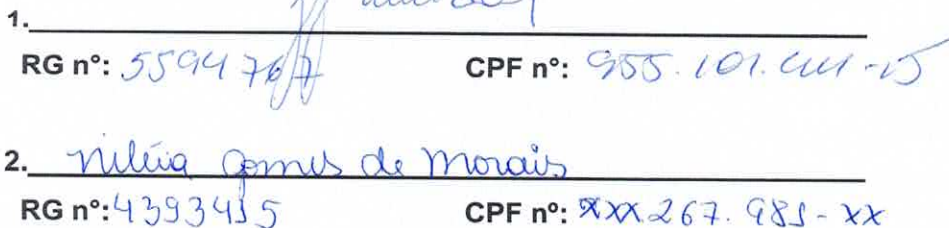 1.
RG nº: 5594767 CPF nº: 955.101.
2. Niléia Gomes de Morais
RG nº: 4393455 CPF nº: XXX.267.981-XX